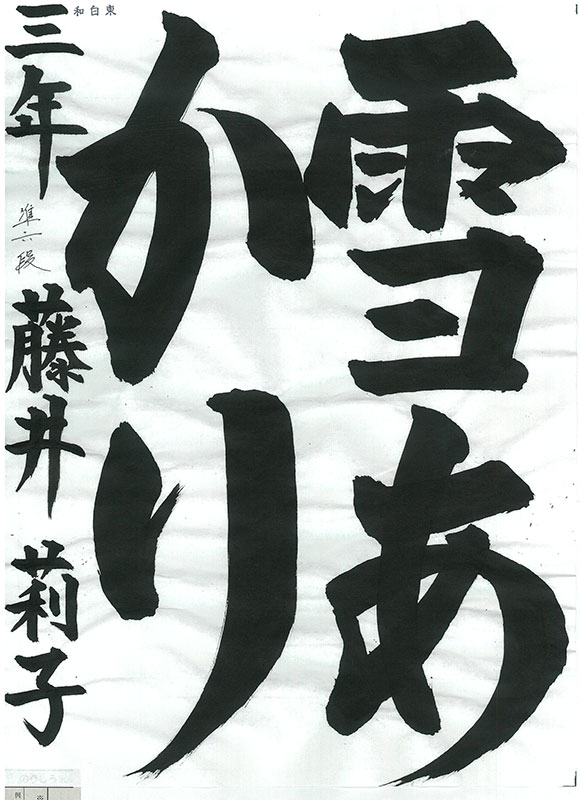 雪あ
かり
三年 準六段 藤井 莉子
東白和